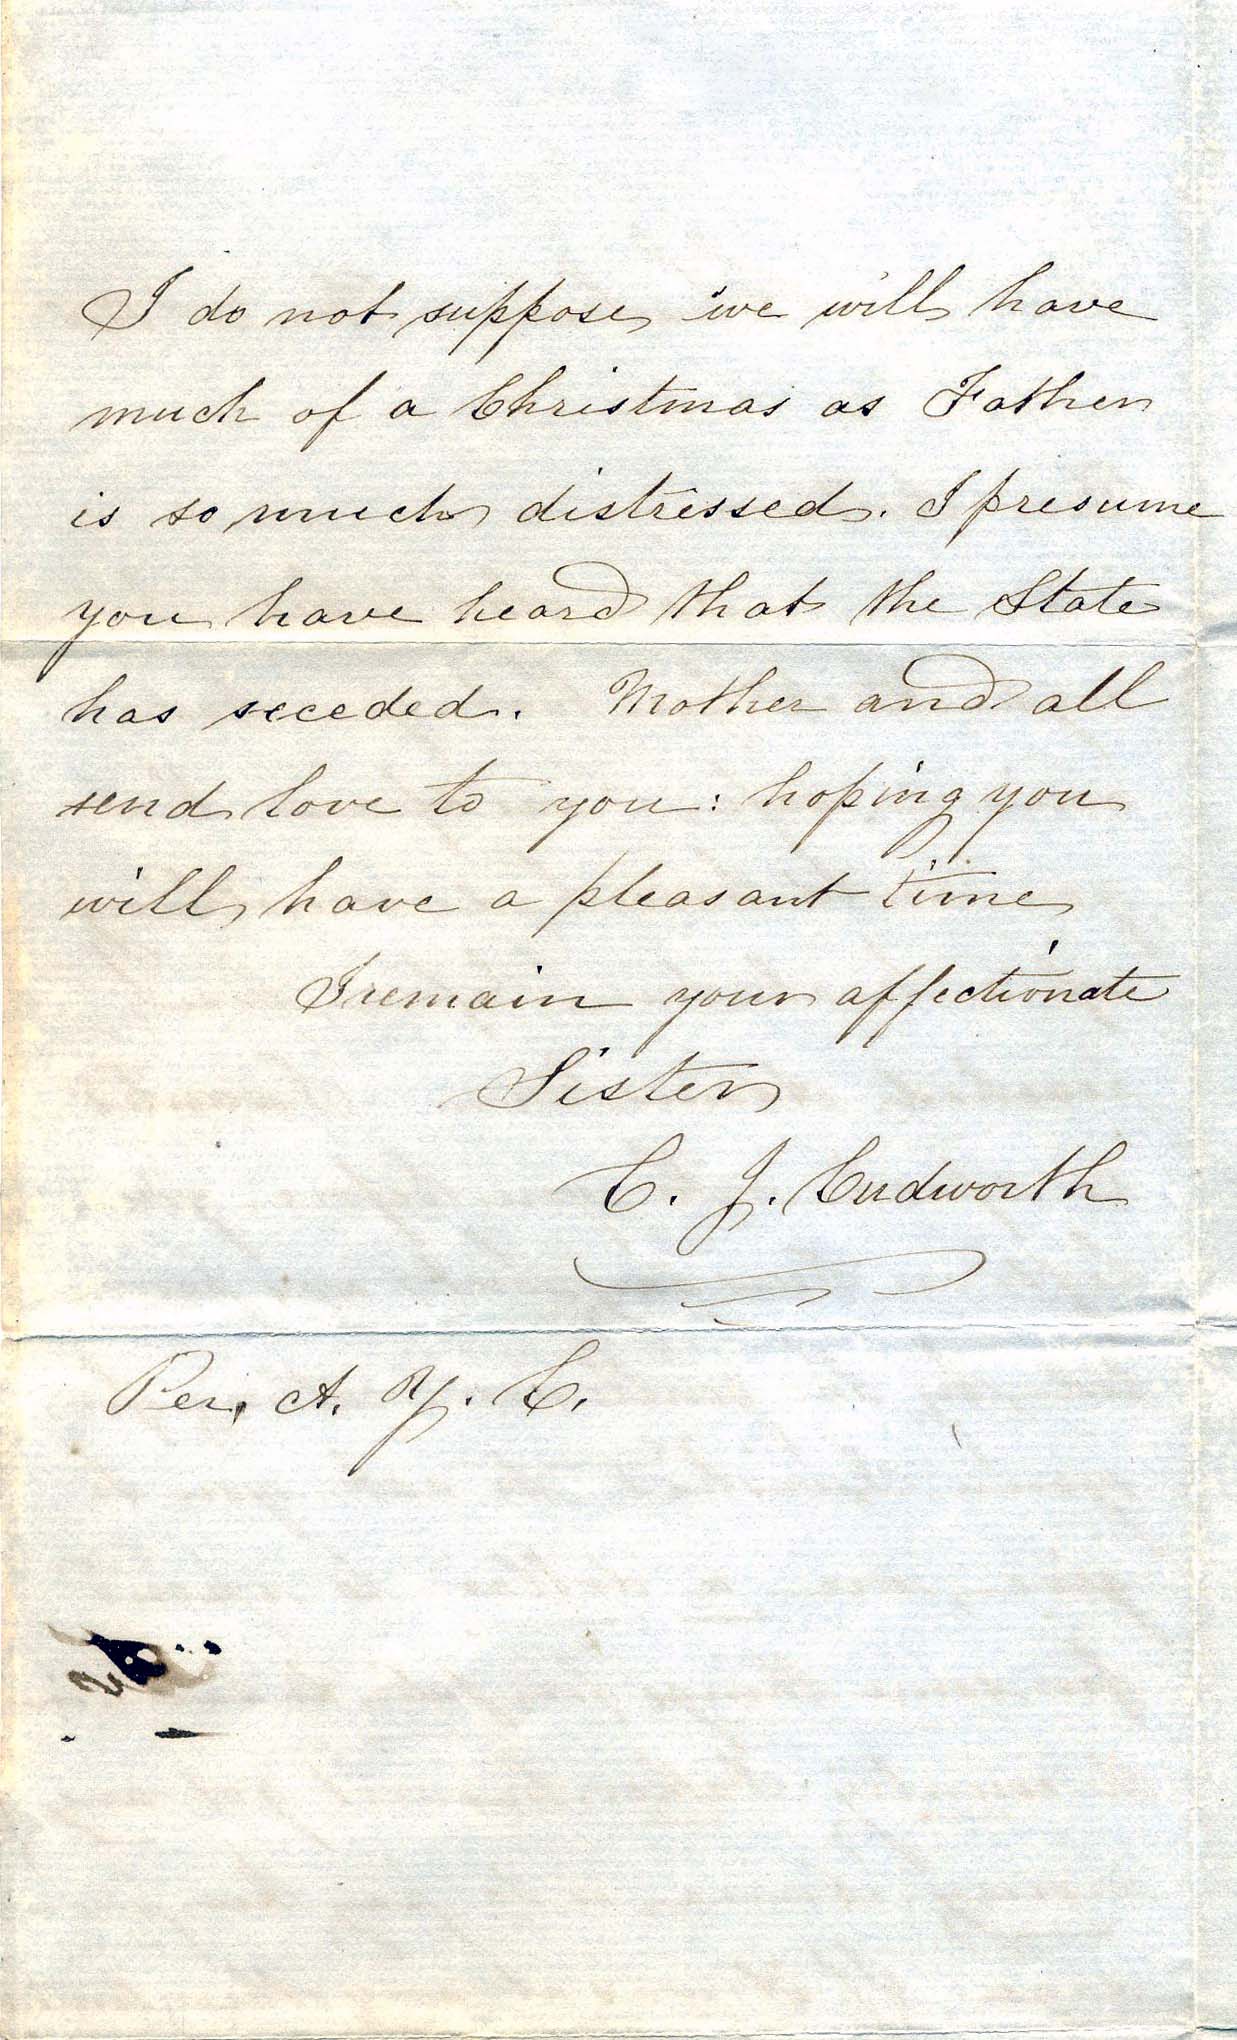 I do not suppose we will have
much of a Christmas as Father
is so much distressed. I presume
you have heard that the State
has seceded. Mother and all
send love to you: hoping you
will have a pleasant time
I remain your affectionate
Sister
C. J. Cudworth
Per, A. Y. C.